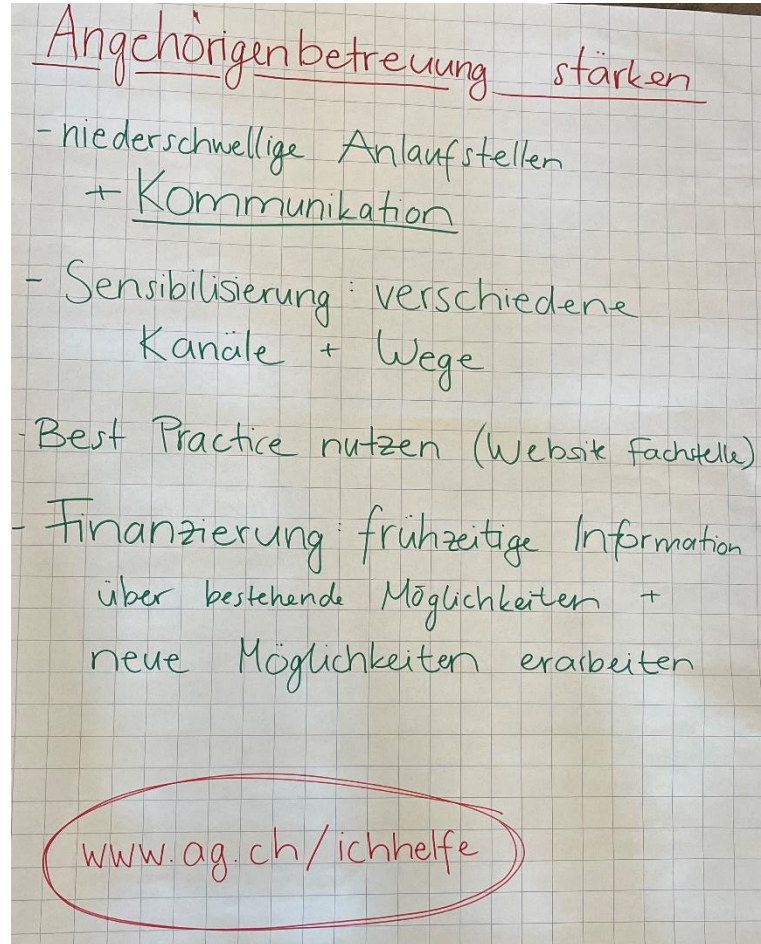 Angehörigenbetreuung stärken
- niederschwellige Anlaufstellen
+ Kommunikation
- Sensibilisierung : verschiedene
Kanäle + Wege
- Best Practice nutzen (Website Fachstelle)
- Finanzierung : frühzeitige Information
über bestehende Möglichkeiten +
neue Möglichkeiten erarbeiten
www.ag.ch/ichhelfe